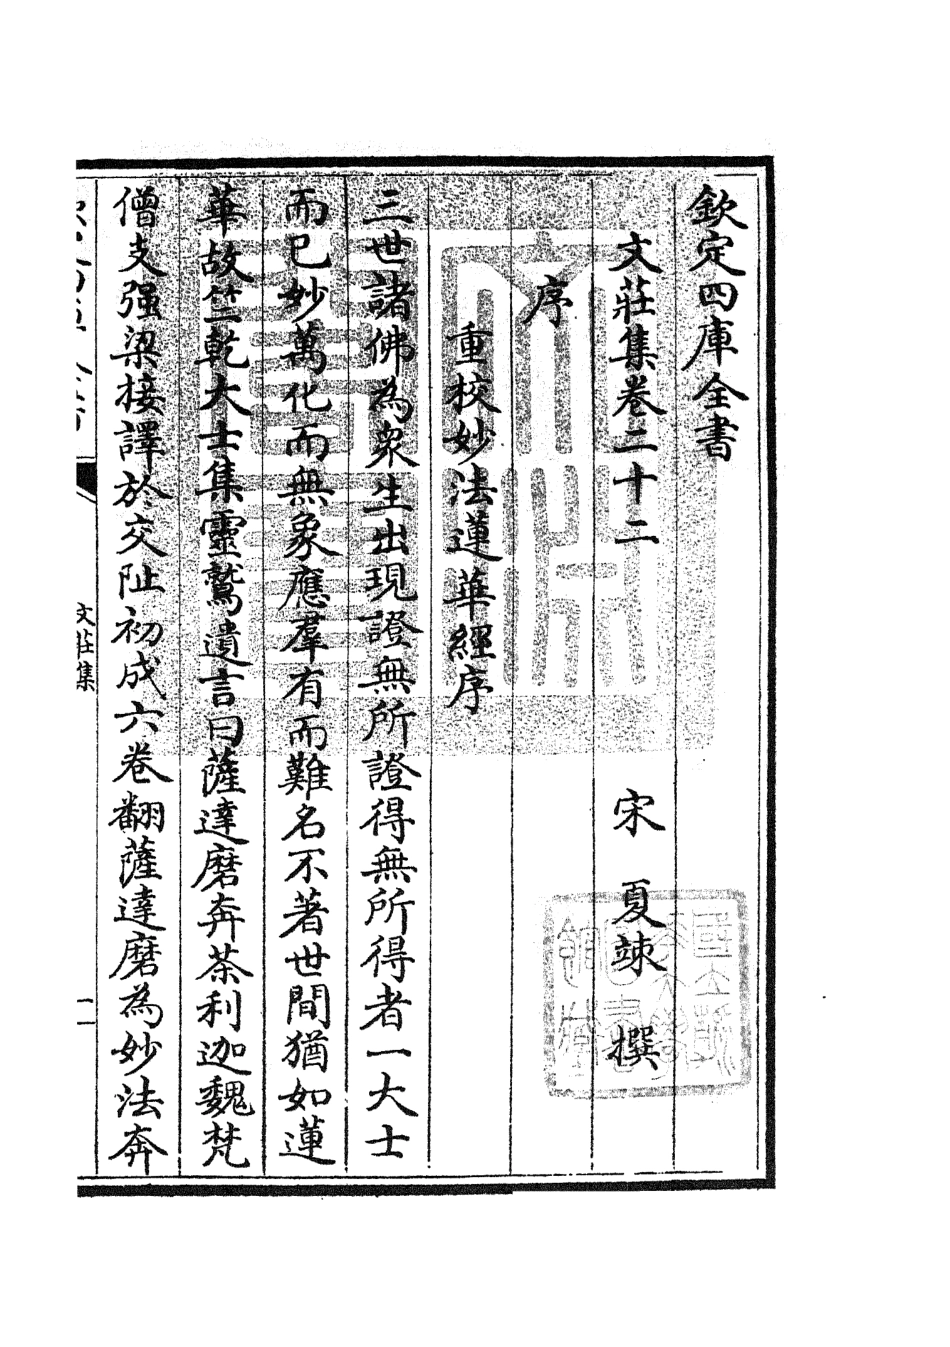 欽定四庫全書
文莊集卷二十二
宋 夏竦 撰
序
重校妙法蓮華經序
三世諸佛為衆生出現證無所證得無所得者一大士
而已妙萬化而無象應羣有而難名不著世間猶如蓮
華故竺乾大士集靈鷲遺言曰薩達磨奔荼利迦魏梵
僧支强梁接譯於交阯初成六卷翻薩達磨為妙法奔
文莊集
一